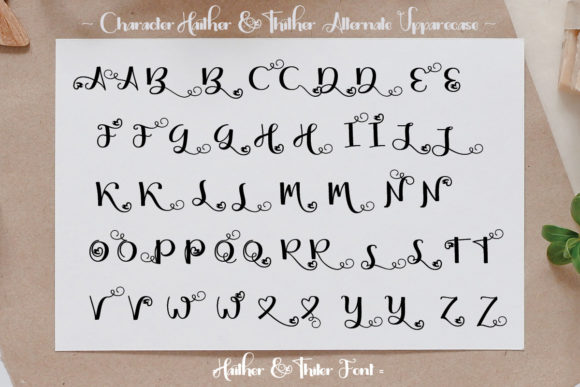 ~ Character Haither & Thither Alternate Upparecase ~
A A B B C C D D E E
F F G G H H I I J J
K K L L M M N N
O O P P Q Q R R S S T T
V V W W X X Y Y Z Z
Haither & Thiter Font =